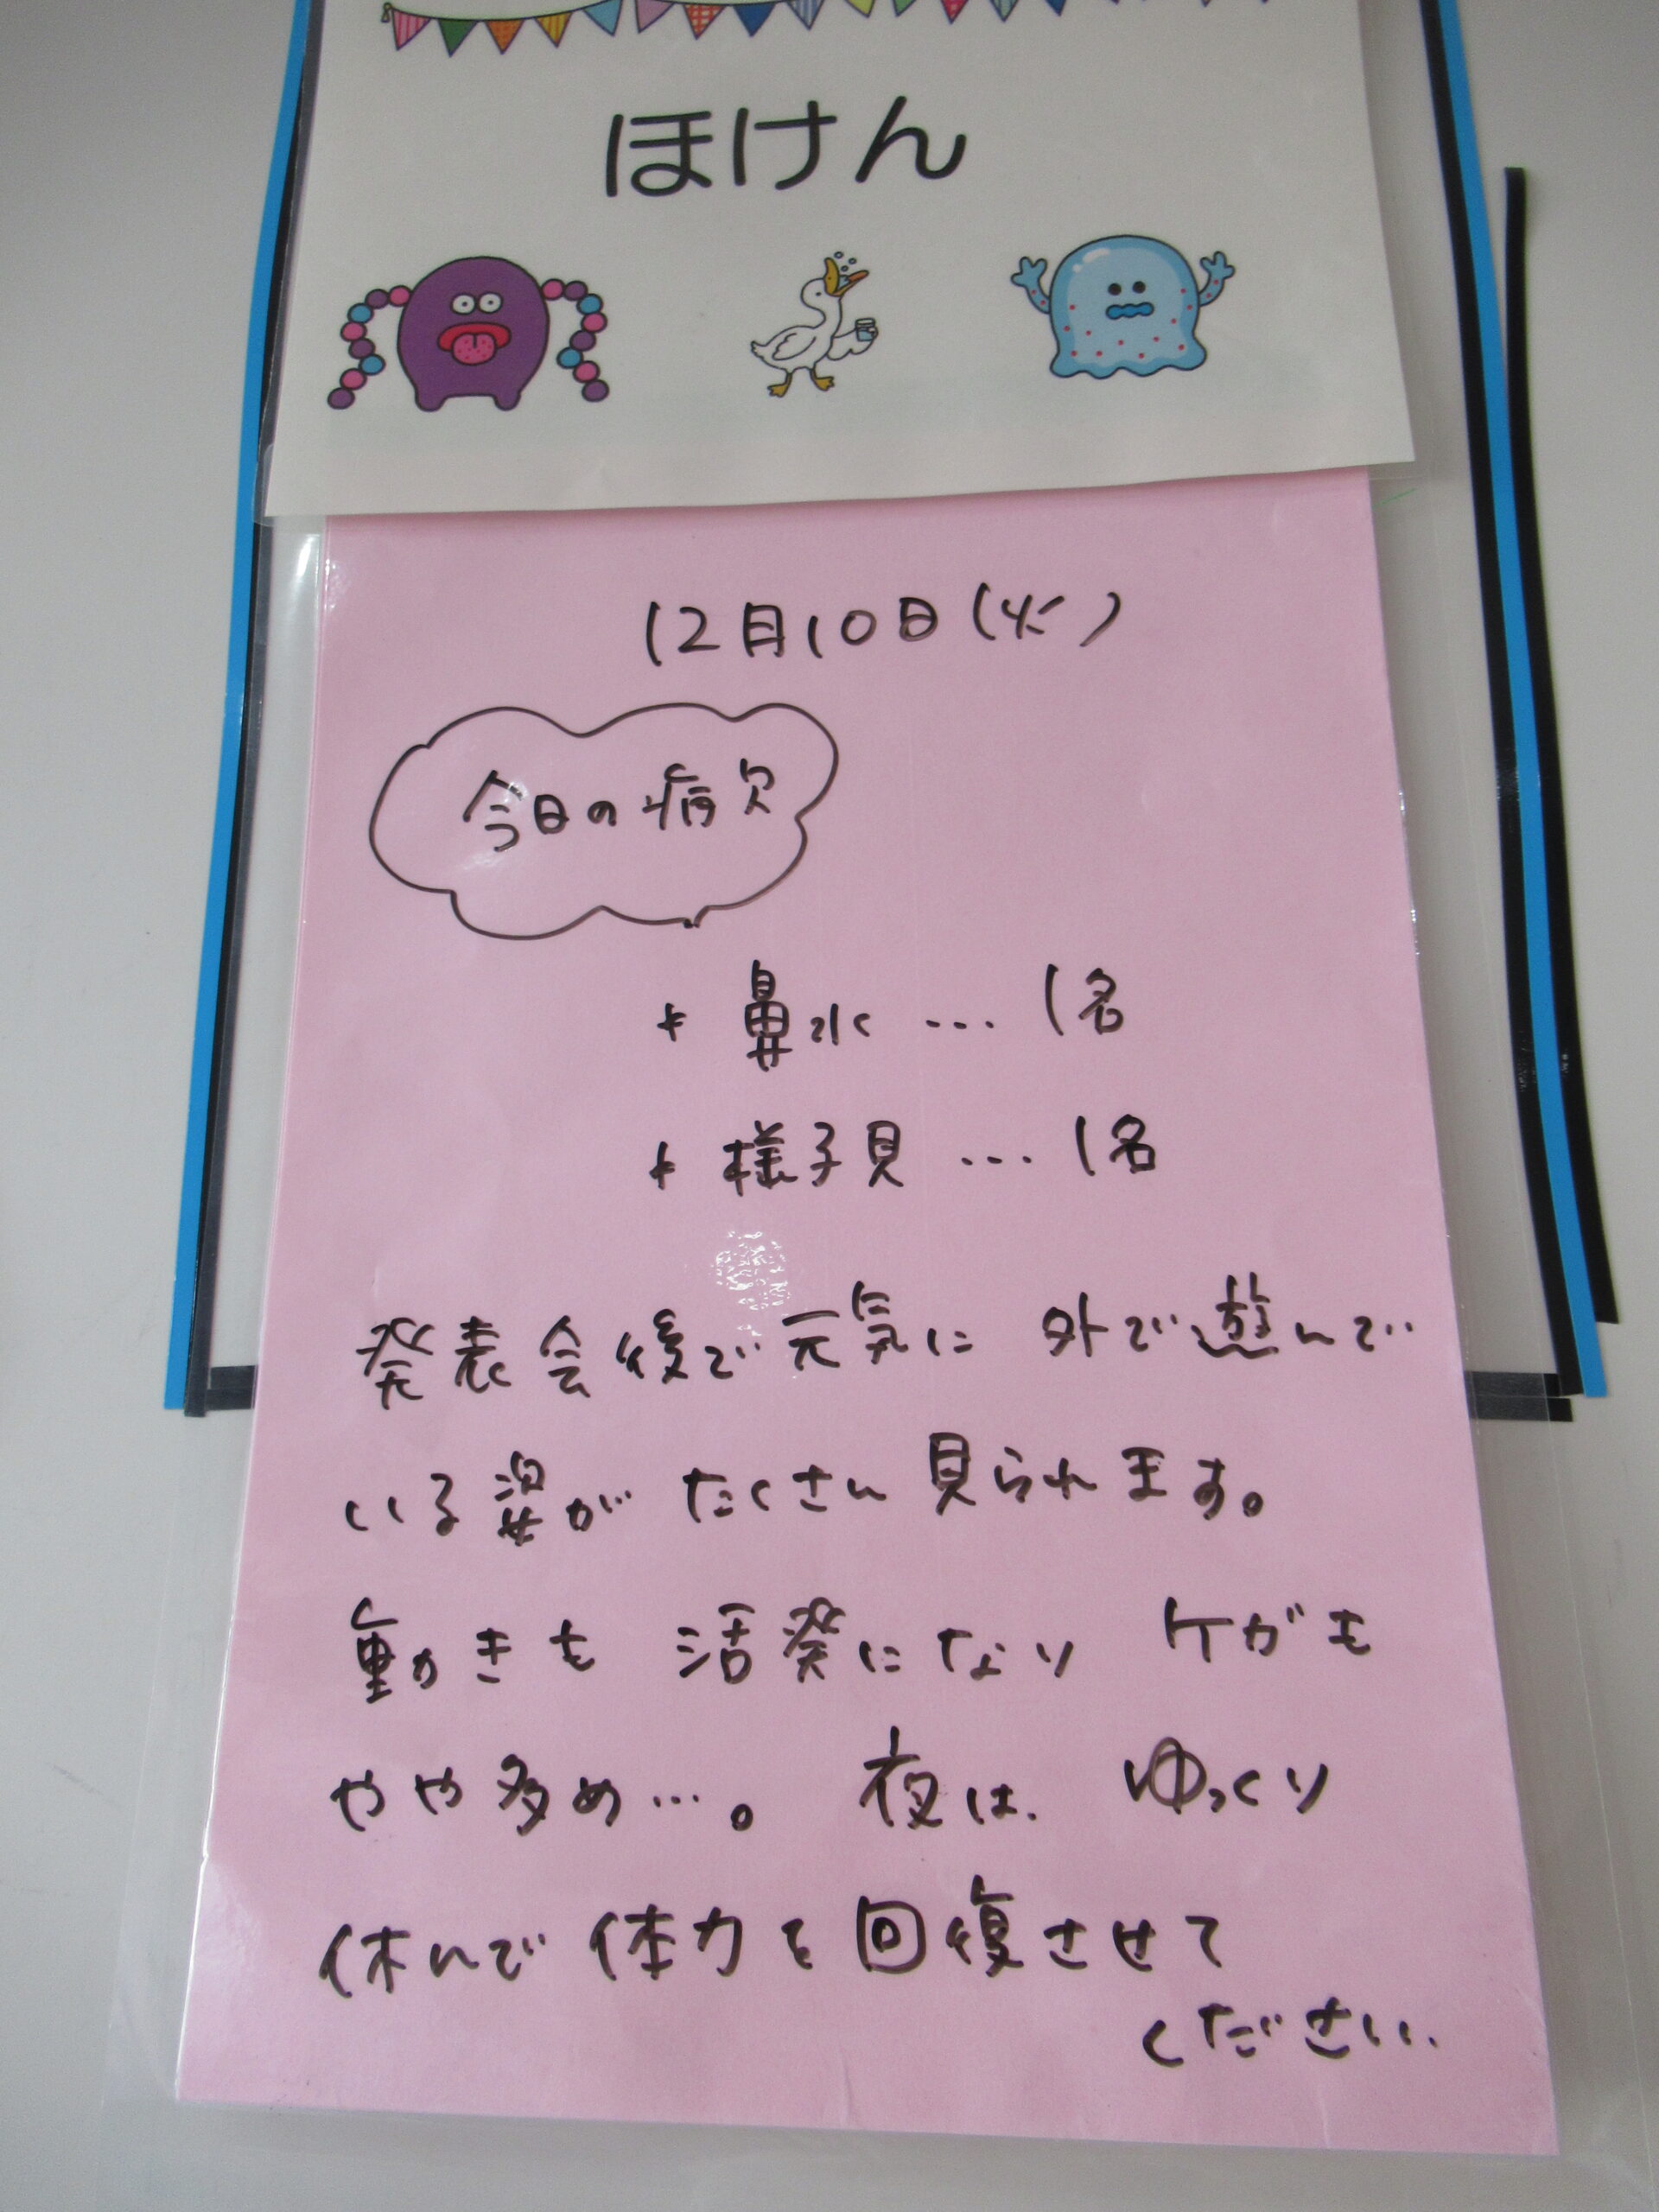 ほけん
12月10日(火)
今日の病欠
* 鼻水 … 1名
* 様子見 … 1名
発表会後で元気に 外で遊んで
いる姿が たくさん見られます。
動きも 活発になり ケガも
やや多め…。 夜は、ゆっくり
休んで 体力を回復させて
ください。